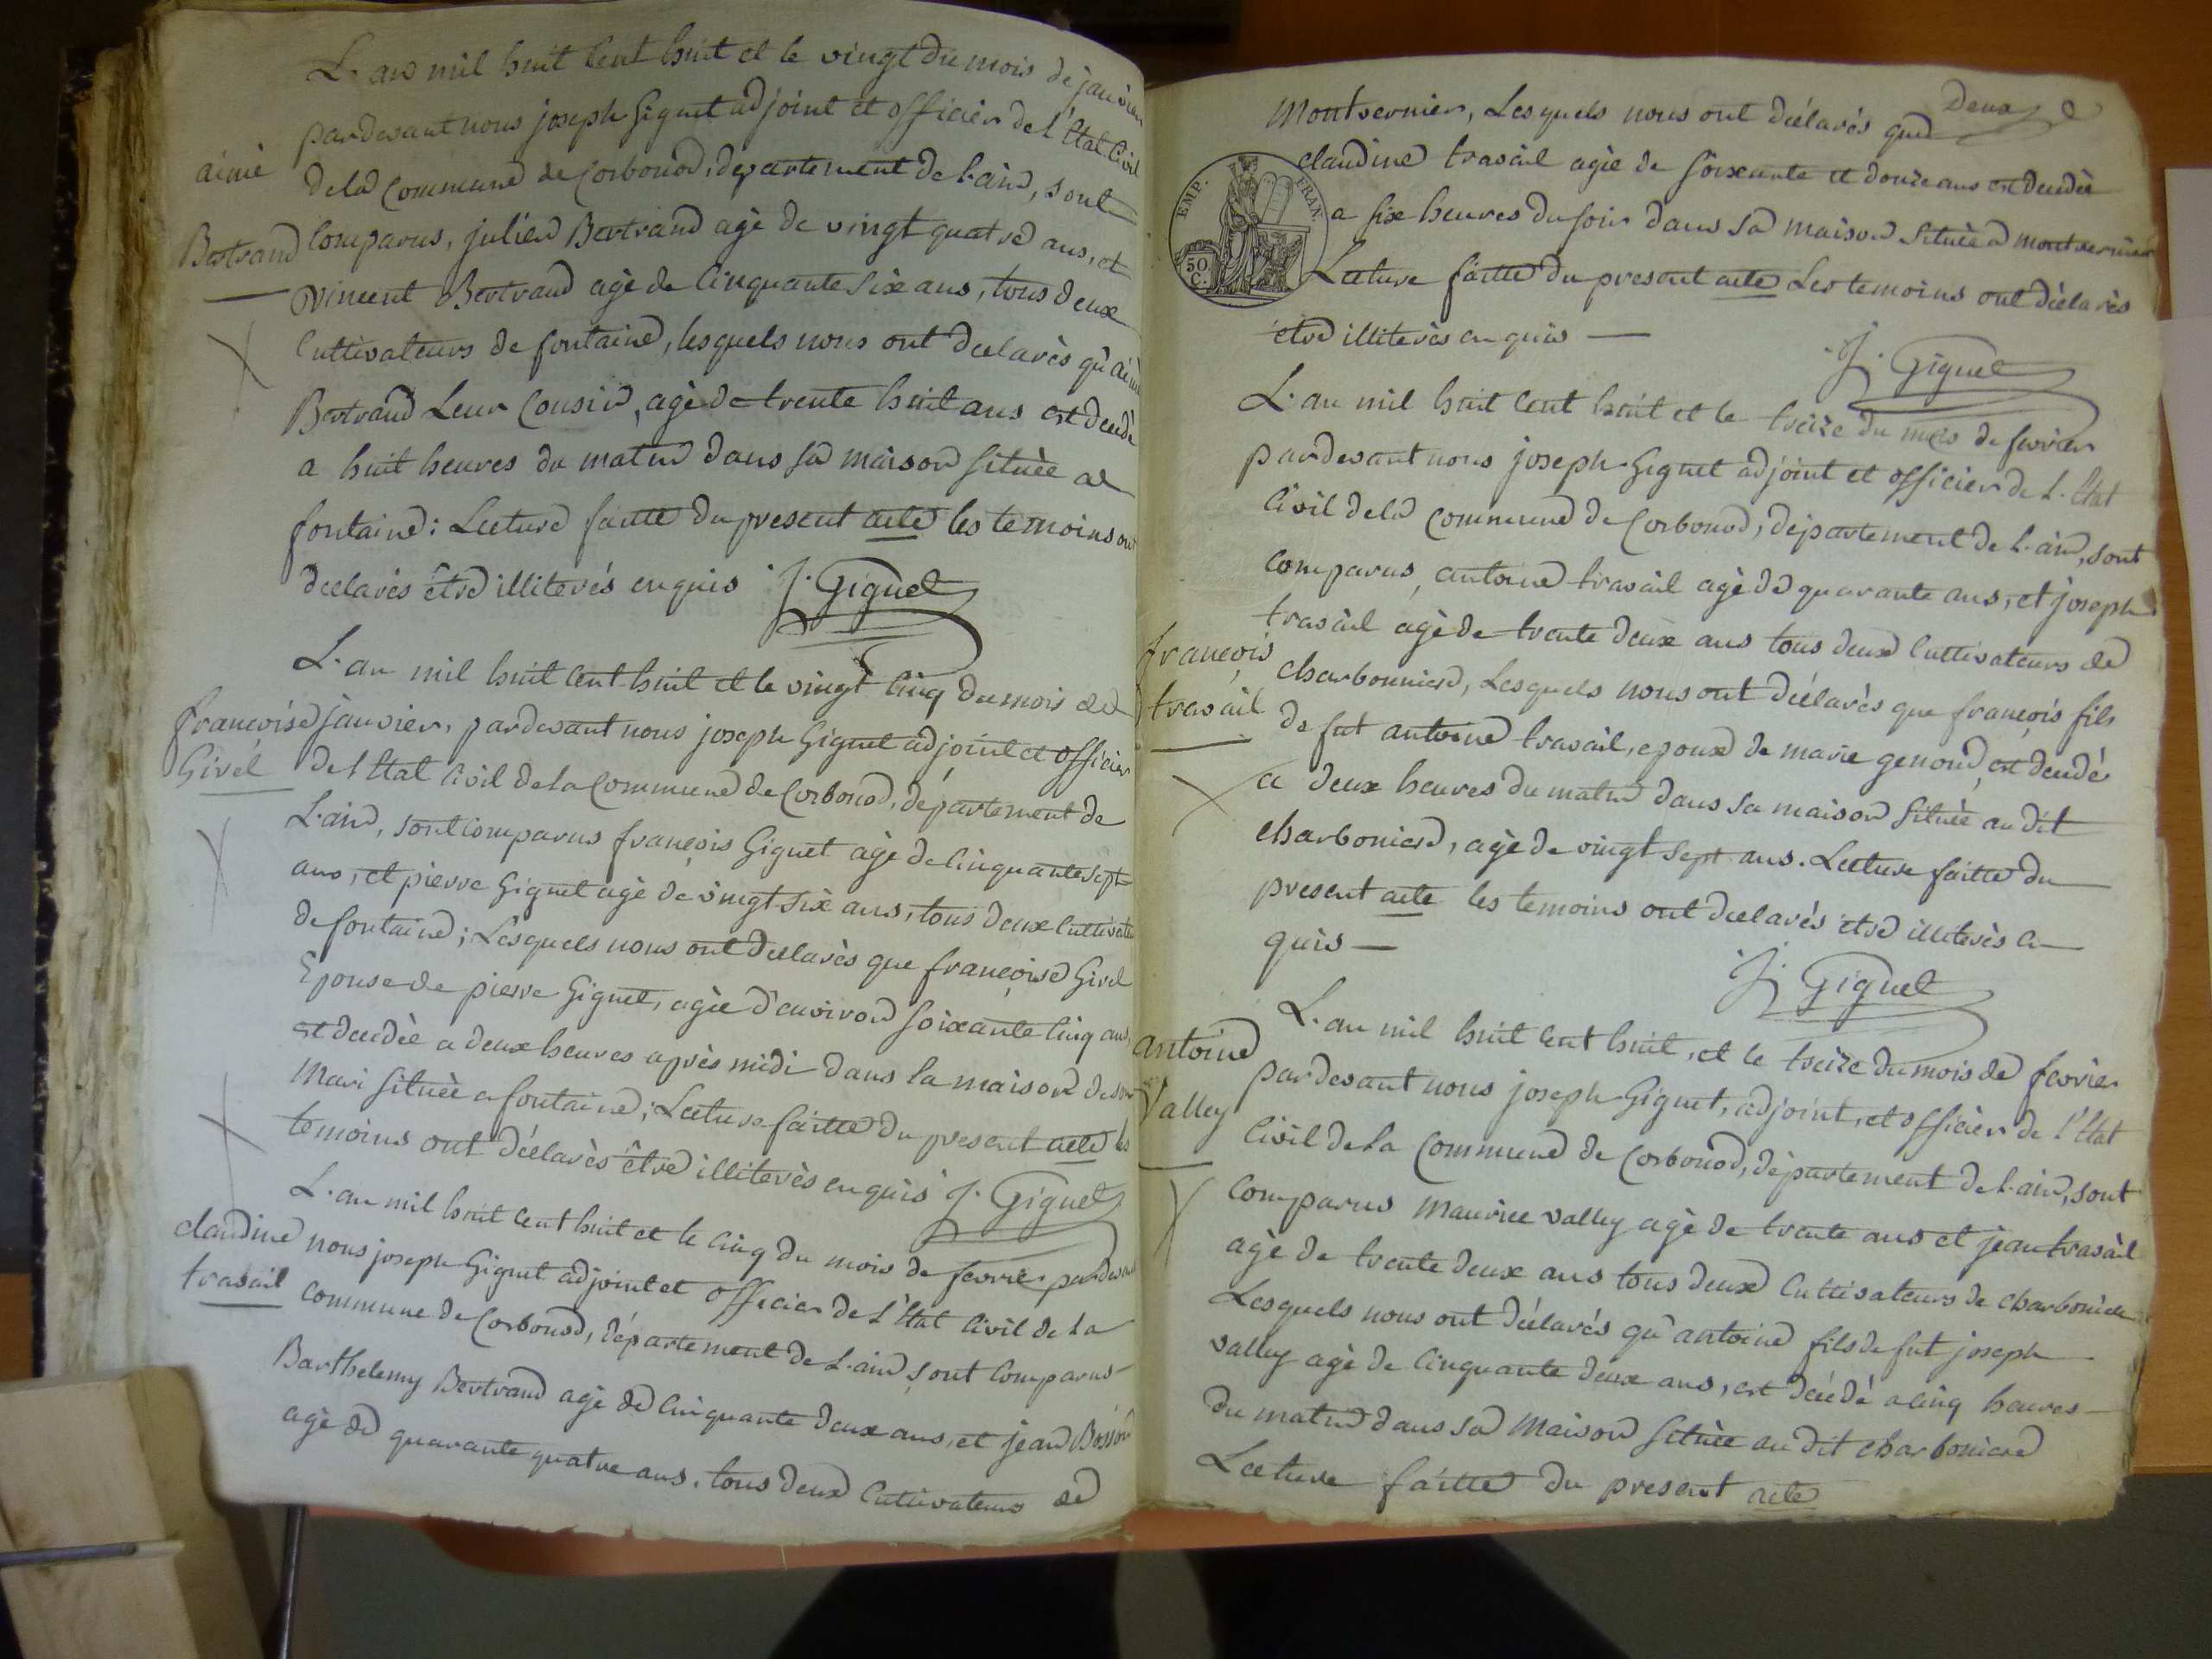 L'an mil huit Cent huit et le vingt du mois de janvier
pardevant nous joseph Giguet adjoint et officier de l'Etat Civil
aimé
dela Commune de Corbonod, departement de l'ain, sont
Bertrand
Comparus, julien Bertrand agè de vingt quatre ans, et
vincent Bertrand agè de Cinquante six ans, tous deux
Cultivateurs de fontaine, lesquels nous ont declarès qu'aimé
Bertrand Leur Cousin, agè de trente huit ans est decedè
a huit heures du matin dans sa maison située a
fontaine: Lecture faitte du present acte les temoins ont
declarès être illiterés enquis J. Giguet
L'an mil huit Cent huit et le vingt Cinq du mois de
françoise
janvier, pardevant nous joseph Giguet adjoint et officier
Givel
de l'Etat Civil de la Commune de Corbonod, département de
L'ain, sont Comparus françois Giguet agè de Cinquante sept
ans, et pierre Giguet agè de vingt six ans, tous deux Cultivateurs
de fontaine; Lesquels nous ont declarès que françoise Givel
Epouse de pierre Giguet, agèe d'environ soixante Cinq ans,
est decedèe a deux heures après midi dans la maison de son
Mari située a fontaine; Lecture faitte du present acte les
temoins ont déclarès être illiterès enquis J. Giguet
L'an mil huit Cent huit et le Cinq du mois de fevrier pardevant
claudine
nous joseph Giguet adjoint et officier de l'Etat Civil de la
travail
Commune de Corbonod, département de L'ain, sont Comparus
Barthelemy Bertrand agè de Cinquante deux ans, et jean Bosson
agè de quarante quatre ans, tous deux Cultivateurs de
Deux 2
Montvernier, Lesquels nous ont déclarés que
claudine travail agèe de soixante et douze ans est decedèe
EMP. FRAN.
50 C.
a six heures du soir dans sa maison situèe a montvernier
Lecture faitte du present acte Les temoins ont déclarès
être illiterès enquis
J. Giguet
L'an mil huit Cent huit et le treize du mois de fevrier
pardevant nous joseph Giguet adjoint et officier de l'Etat
Civil dela Commune de Corbonod, département de L'ain, sont
Comparus, antoine travail agè de quarante ans, et joseph
travail agè de trente deux ans tous deux Cultivateurs de
françois
travail
charbonniere, Lesquels nous ont déclarès que françois fils
de fut antoine travail, epoux de marie genoud, est decedé
a deux heures du matin dans sa maison située au dit
charboniere, agè de vingt sept ans. Lecture faitte du
present acte les temoins ont declarés etre illiterès en
quis
J. Giguet
L'an mil huit Cent huit, et le treize du mois de fevrier
antoine
Valley
pardevant nous joseph Giguet, adjoint, et officier de l'Etat
Civil de la Commune de Corbonod, département de L'ain, sont
Comparus Maurice valley agè de trente ans et jean travail
agè de trente deux ans tous deux Cultivateurs de charboniere
Lesquels nous ont déclarés qu'antoine fils de fut joseph
valley agè de Cinquante deux ans, est décédé a Cinq heures
du matin dans sa Maison située au dit charboniere
Lecture faitte du present acte